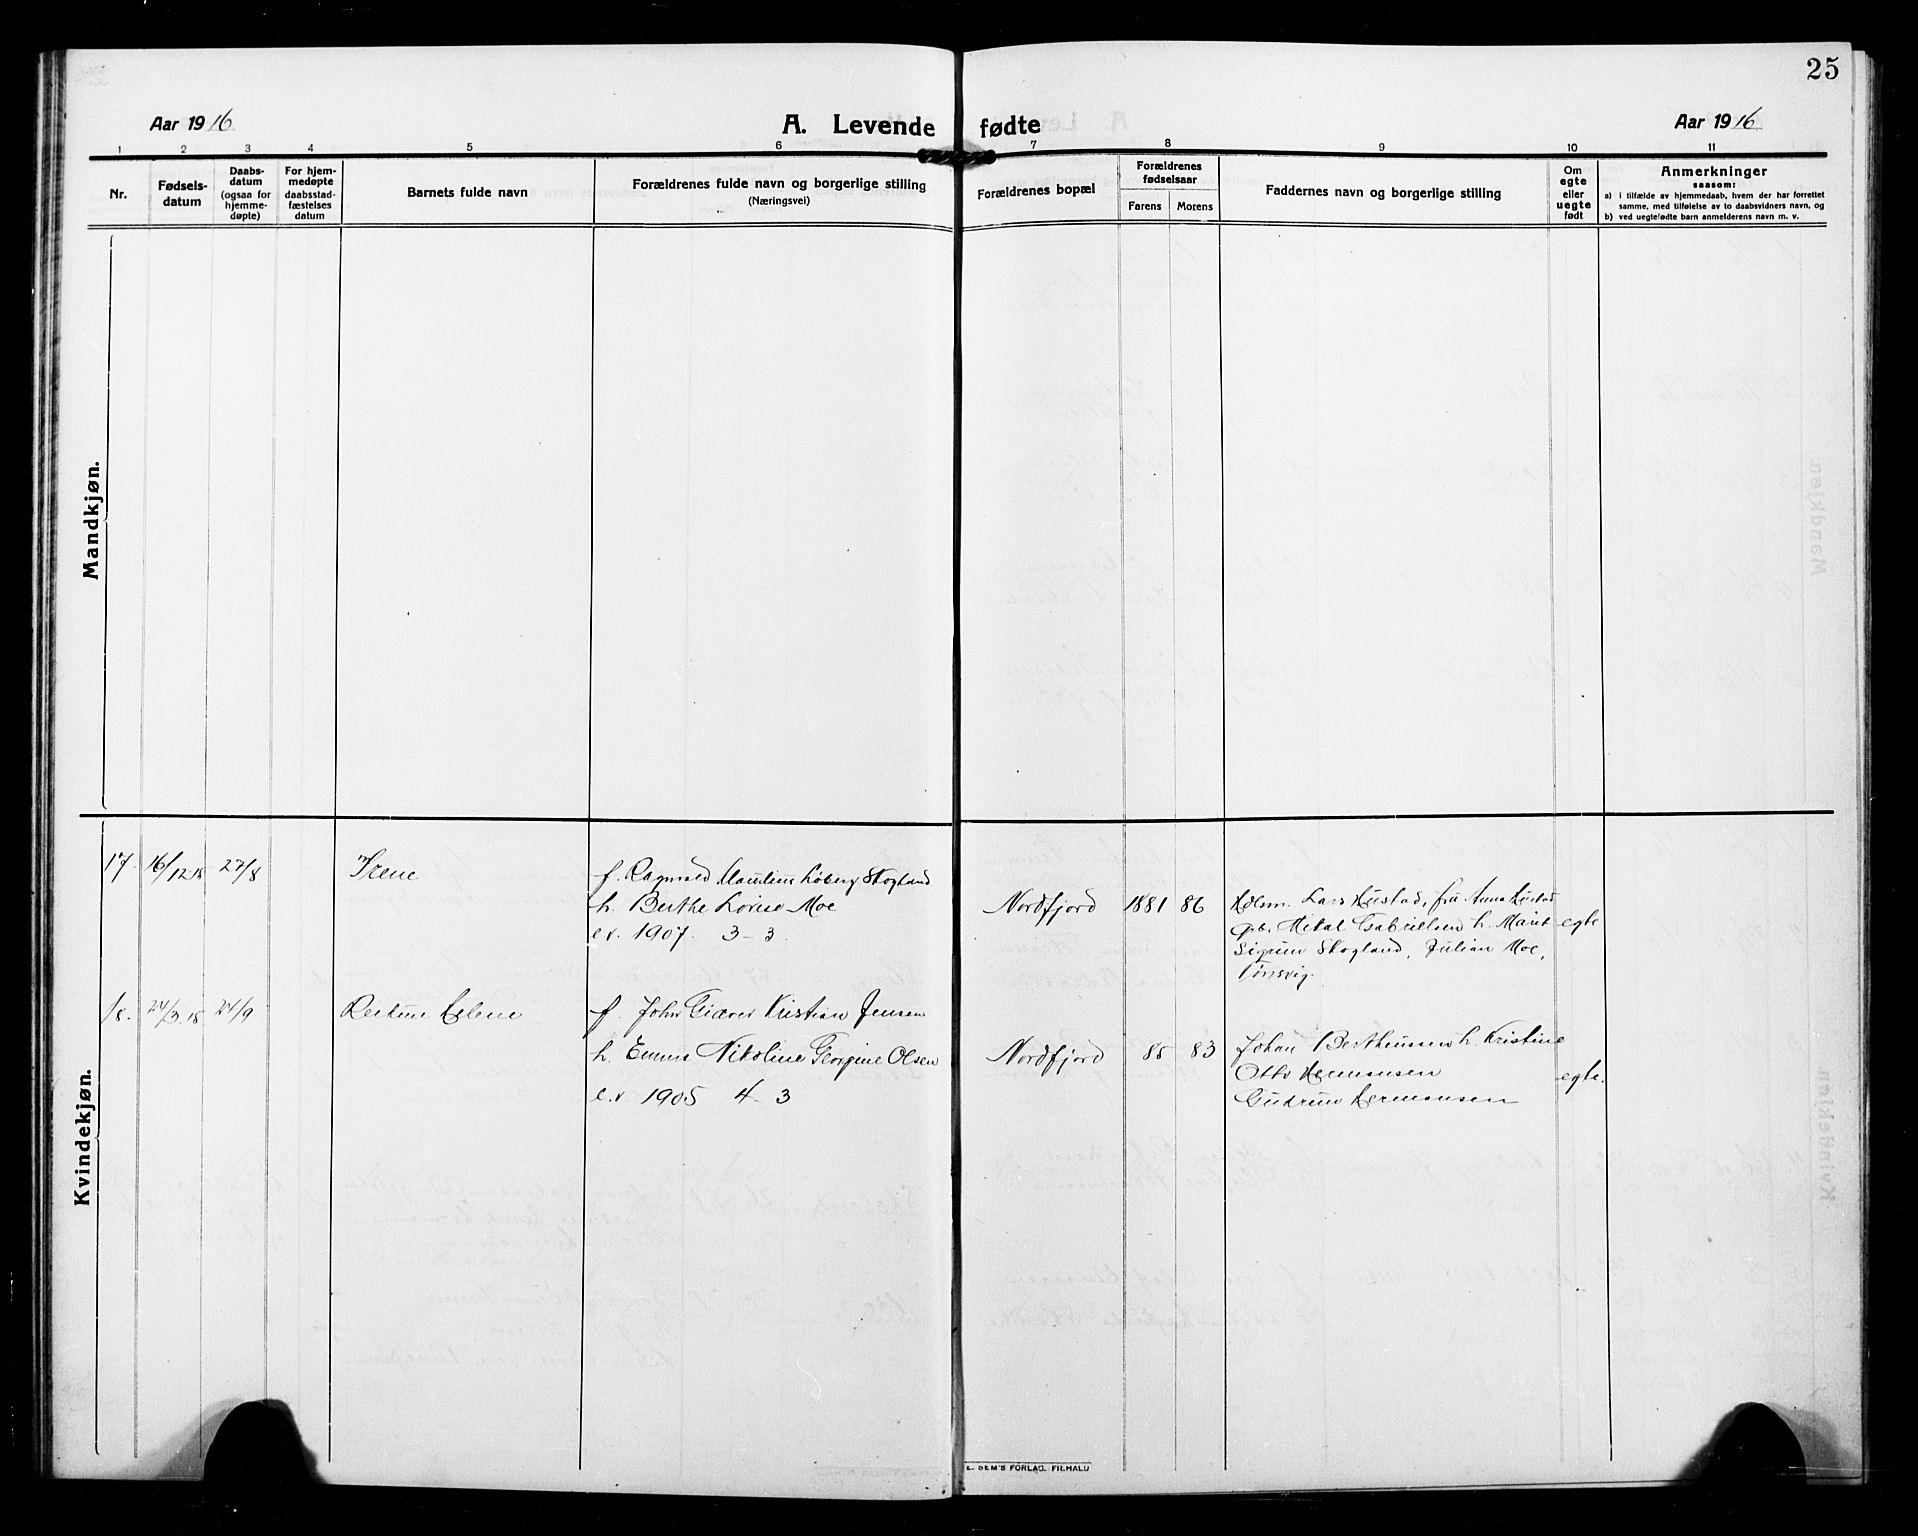 25
Aar 1916
A. Levende fødte
Aar 1916
1 2 3 4 5 6 7 8 9 10 11
Nr.
Fødsels-
datum
Daabs-
datum
(ogsaa for
hjemme-
døpte)
For hjem-
medøpte
daabsstad-
fæstelses
datum
Barnets fulde navn
Forældrenes fulde navn og borgerlige stilling
(Næringsvei)
Forældrenes bopæl
Forældrenes
fødselsaar
Farens Morens
Faddernes navn og borgerlige stilling
Om
egte
eller
uegte
født
Anmerkninger
saasom:
a) i tilfælde av hjemmedaab, hvem der har forrettet
samme, med tilføielse av to daabsvidners navn, og
b) ved uegtefødte barn anmelderens navn m. v.
Mandkjøn.
Kvindekjøn.
17. 16/12.15 27/8 Irene
f. Ragnvald Løberg Skogland
h. Berthe Lovise Moe
e.v. 1907. 3-3.
Nordfjord 1881 86
Lars Hustad, fru Anna Hustad
Mikal Gabrielsen h. Marit
Sigrun Skogland, Julian Moe,
Tønsvig.
egte
18. 24/3.15 24/9 Helene
f. John Giæver Kristian Jensen
h. Emma Nikoline Georgine Olsen
e.v 1905 4-3
Nordfjord 85 83
Johan Bertheussen h. Kristine
Otto Hermansen
Gudrun Hermansen
egte.
E. SEM'S FORLAG, FR.HALD